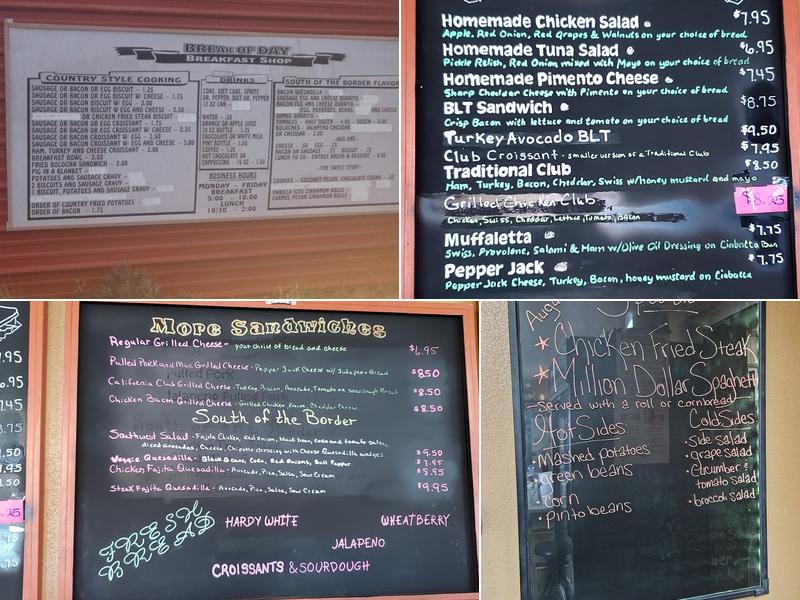 BREAK OF DAY
BREAKFAST SHOP
COUNTRY STYLE COOKING
SAUSAGE OR BACON OR EGG BISCUIT - 1.25
SAUSAGE OR BACON OR EGG BISCUIT W/ CHEESE - 1.75
SAUSAGE OR BACON BISCUIT W/ EGG - 2.00
SAUSAGE OR BACON BISCUIT W/ EGG AND CHEESE - 2.50
OR CHICKEN FRIED STEAK BISCUIT
SAUSAGE OR BACON OR EGG CROISSANT - 1.75
SAUSAGE OR BACON OR EGG CROISSANT W/ CHEESE - 2.25
SAUSAGE OR BACON CROISSANT W/ EGG - 2.50
SAUSAGE OR BACON CROISSANT W/ EGG AND CHEESE - 3.00
HAM, TURKEY AND CHEESE CROISSANT - 2.00
BREAKFAST BOWL - 3.50
FRIED BOLOGNA SANDWICH - 2.00
PIG IN A BLANKET
POTATOES AND SAUSAGE GRAVY
2 BISCUITS AND SAUSAGE GRAVY
1 BISCUIT, POTATOES AND SAUSAGE GRAVY
ORDER OF COUNTRY FRIED POTATOES
ORDER OF BACON - 1.75
DRINKS
COKE, DIET COKE, SPRITE
DR. PEPPER, DIET DR. PEPPER
12 OZ CAN
WATER
ORANGE OR APPLE JUICE
10 OZ BOTTLE - 1.25
CHOCOLATE OR WHITE MILK
PINT BOTTLE - 1.50
COFFEE
HOT CHOCOLATE OR
CAPPUCCINO
BUSINESS HOURS
MONDAY - FRIDAY
BREAKFAST
5:00 - 10:00
LUNCH
10:30 - 2:00
SOUTH OF THE BORDER FLAVOR
BACON QUESADILLA
SAUSAGE AND EGG BURRITO
BACON EGG AND CHEESE BURRITO
EGG, POTATOES, BEANS, AND CHEESE
JUMBO BURRITO
TAMALES - HALF DOZEN - DOZEN
KOLACHES - JALAPENO CHEDDAR
OR CHEDDAR - 2.00
ADD ONS
BACON OR SAUSAGE
LUNCH TO GO - ENTREE BREAD & DESSERT
THE SWEET STUFF
COOKIES
VANILLA ICED CINNAMON ROLLS
CARMEL PECAN CINNAMON ROLLS
Homemade Chicken Salad $7.95
Apple, Red Onion, Red Grapes & Walnuts on your choice of bread
Homemade Tuna Salad $6.95
Pickle Relish, Red Onion mixed with Mayo on your choice of bread
Homemade Pimento Cheese $7.45
Sharp Cheddar Cheese with Pimento on your choice of bread
BLT Sandwich $8.75
Crisp Bacon with lettuce and tomato on your choice of bread
Turkey Avocado BLT $9.50
Club Croissant - smaller version of a Traditional Club $7.95
Traditional Club $8.50
Ham, Turkey, Bacon, Cheddar, Swiss w/honey mustard and mayo
Grilled Chicken Club $8.25
Chicken, Swiss, Cheddar, Lettuce, Tomato, Bacon
Muffaletta $7.75
Swiss, Provolone, Salami & Ham w/Olive Oil Dressing on Ciabatta Bun
Pepper Jack $7.75
Pepper Jack Cheese, Turkey, Bacon, honey mustard on Ciabatta
More Sandwiches
Regular Grilled Cheese - your choice of bread and cheese $6.95
Pulled Pork and Mac Grilled Cheese - Pepper Jack Cheese w/ Jalapeno Bread $8.50
California Club Grilled Cheese - Turkey, Bacon, Avocado, Tomato on sourdough Bread $8.50
Chicken Bacon Grilled Cheese - Grilled Chicken, Bacon, Cheddar Cheese $8.50
South of the Border
Southwest Salad - Fajita Chicken, Red onion, black bean, corn and tomato salsa,
diced avocados, Cheese, Chipotle dressing with Cheese Quesadilla wedges $9.50
Veggie Quesadilla - Black Beans, Corn, Red Onions, Bell Pepper $7.95
Chicken Fajita Quesadilla - Avocado, Pico, Salsa, Sour Cream $8.95
Steak Fajita Quesadilla - Avocado, Pico, Salsa, Sour Cream $9.95
FRESH
BREAD
HARDY WHITE
WHEATBERRY
JALAPENO
CROISSANTS & SOURDOUGH
.95
.95
7.45
8.75
.50
.95
.50
.25
.75
.75
Augu
* Chicken Fried Steak
* Million Dollar Spaghetti
- Served with a roll or cornbread
Hot Sides
• Mashed potatoes
• green beans
• corn
• pinto beans
Cold Sides
• side salad
• grape salad
• Cucumber &
tomato salad
• broccoli salad